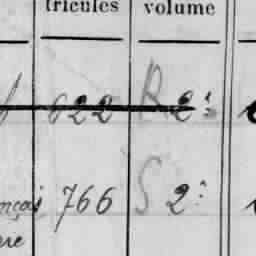 tricules volume
622 R 2:
nçai 766 S 2: